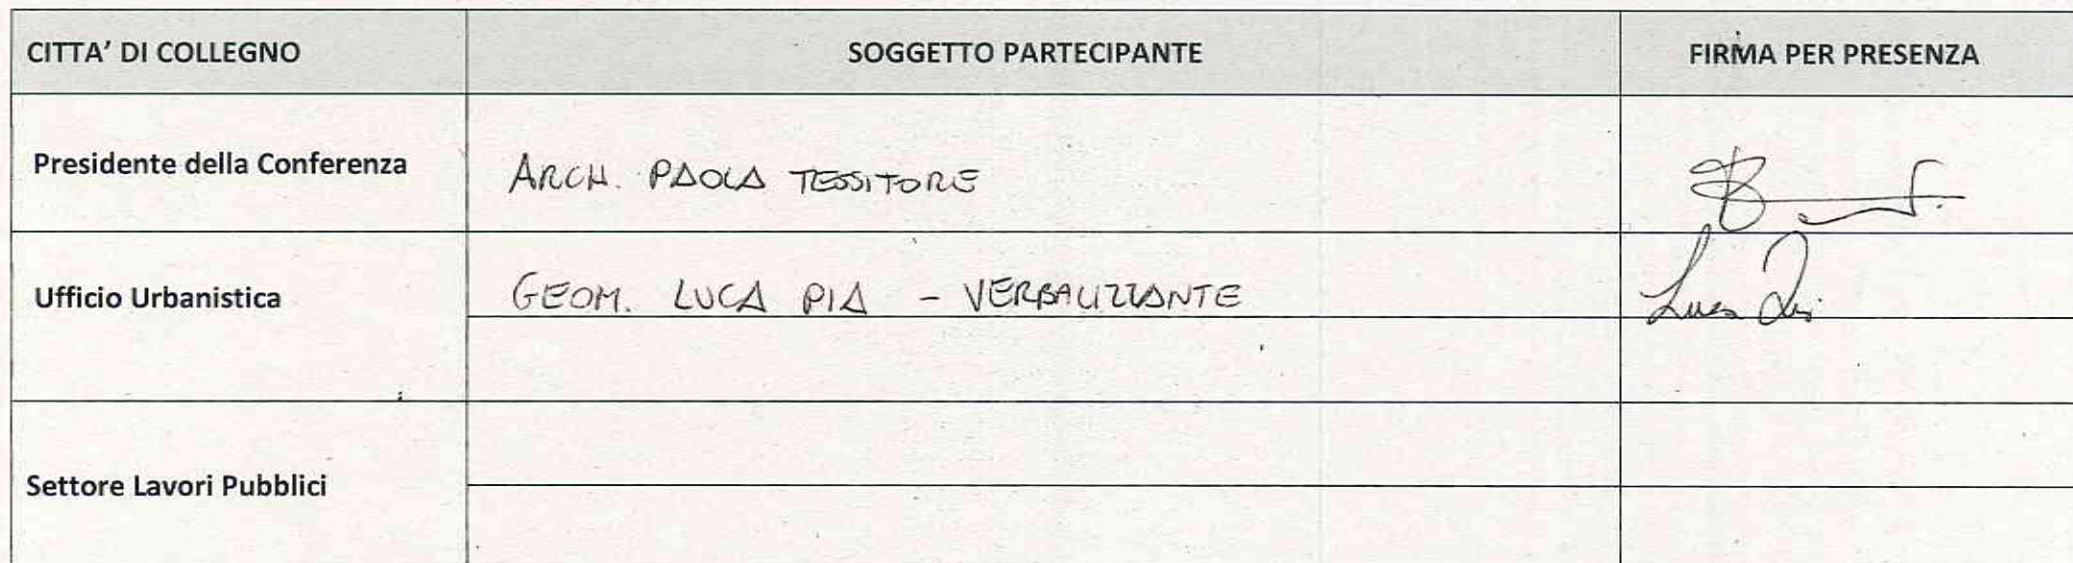 CITTA' DI COLLEGNO SOGGETTO PARTECIPANTE FIRMA PER PRESENZA
Presidente della Conferenza ARCH. PAOLA TESSITORE
Ufficio Urbanistica GEOM. LUCA PIA - VERBALIZZANTE Luca Pia
Settore Lavori Pubblici